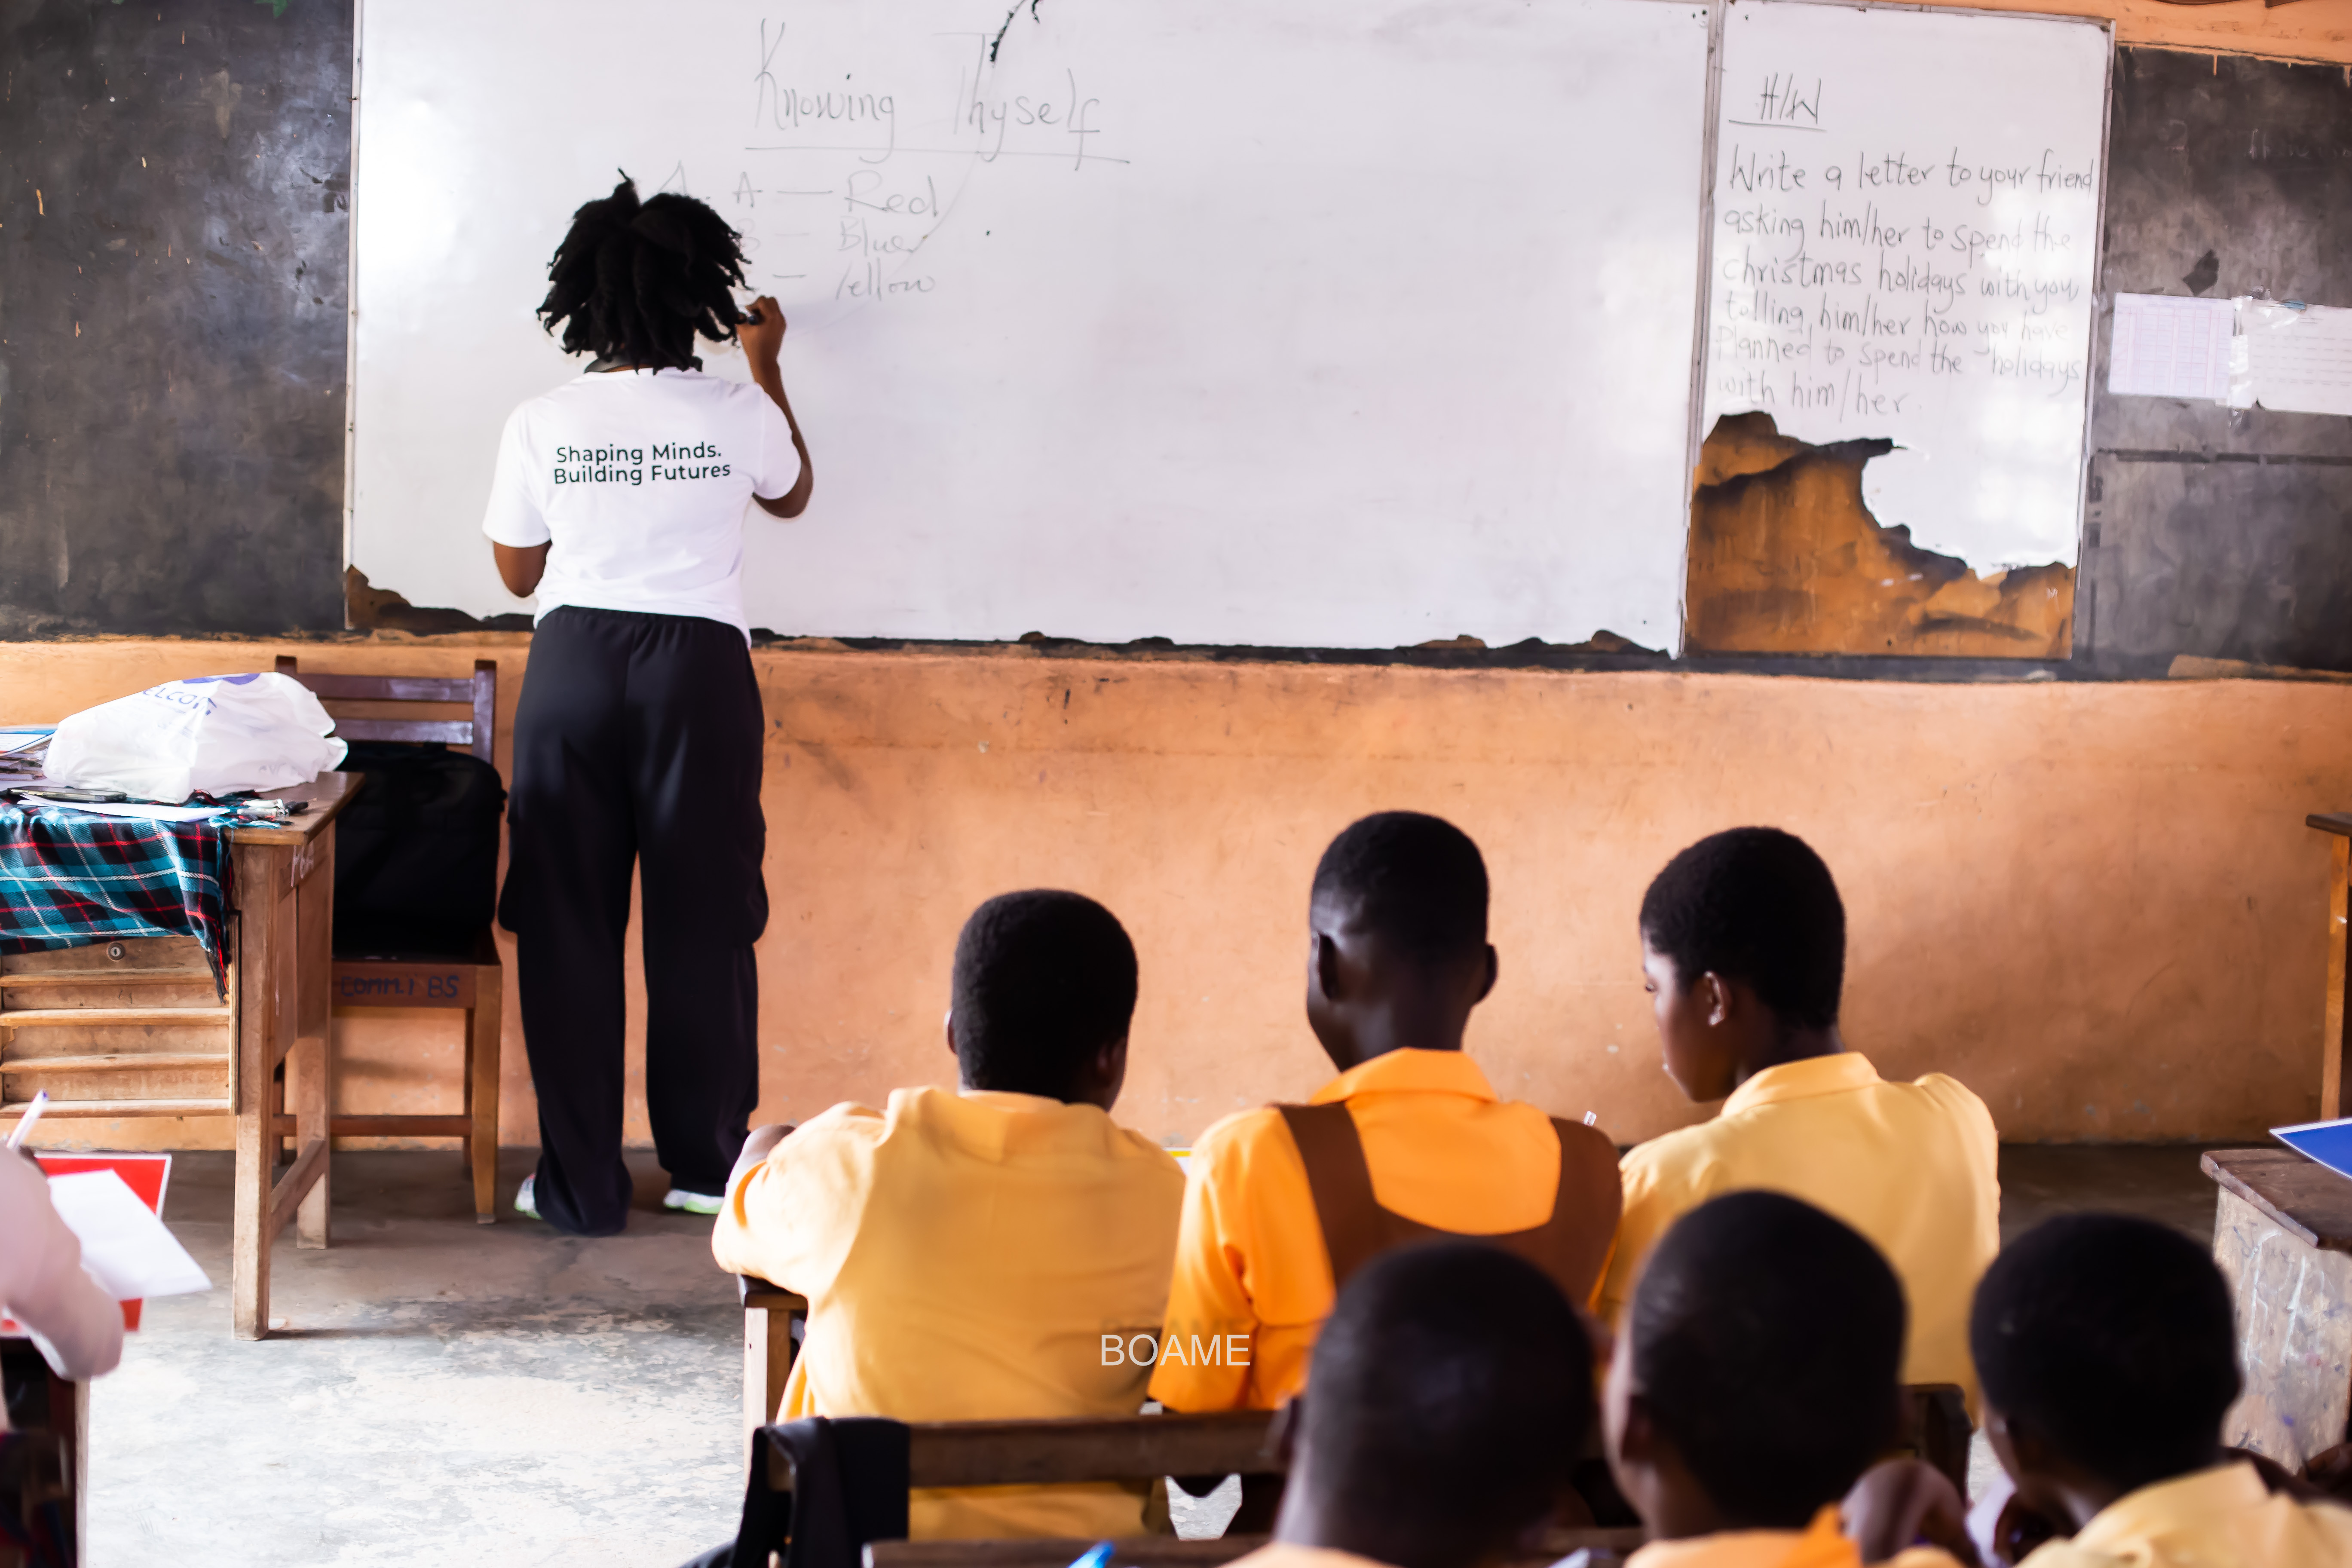 Knowing Thyself
A. A — Red
B — Blue
— Yellow
H/W
Write a letter to your friend
asking him/her to spend the
christmas holidays with you
telling him/her how you have
Planned to spend the holidays
with him/her.
Shaping Minds.
Building Futures
COMM.1 BS
BOAME